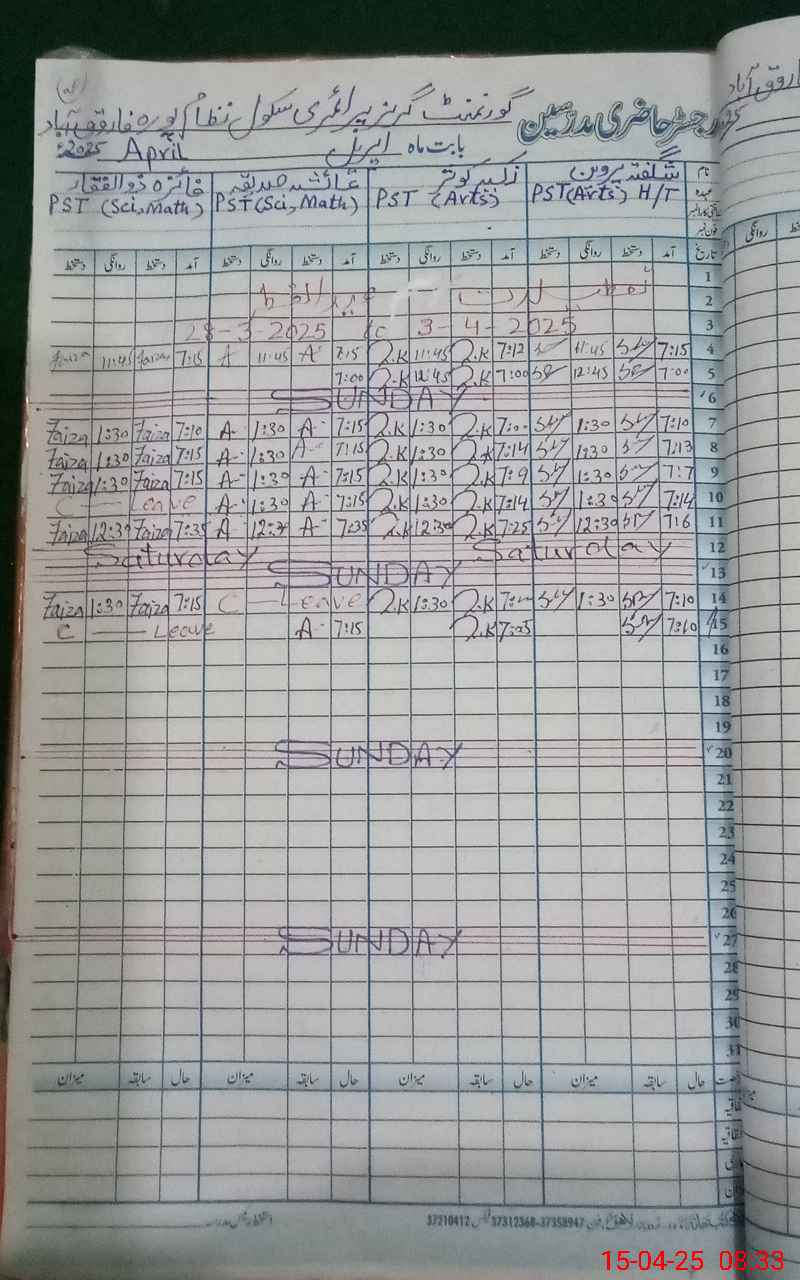 رجسٹر حاضری مدرسین گورنمنٹ گرلز پرائمری سکول نظام پورہ فاروق آباد
بابت ماہ اپریل April 2025
نام شگفتہ پروین زکیہ کوثر عائشہ صدیقہ فائزہ ذوالفقار
عہدہ PST (Arts) H/T PST (Arts) PST (Sci, Math) PST (Sci, Math)
تاریخ آمد دستخط روانگی دستخط آمد دستخط روانگی دستخط آمد دستخط روانگی دستخط آمد دستخط روانگی دستخط
1
2 تعطیلات عید الفطر
3 28-3-2025 to 3-4-2025
4 7:15 11:45 7:12 Z.K 11:45 Z.K 7:15 A 11:45 A 7:15 Faiza 11:45 Faiza
5 7:00 12:45 7:00 Z.K 12:45 Z.K 7:00
6 SUNDAY
7 7:10 1:30 Z.K 1:30 Z.K 7:15 A 1:30 A 7:10 Faiza 1:30 Faiza
8 7:13 1:30 7:14 Z.K 1:30 Z.K 7:15 A 1:30 A 7:15 Faiza 1:30 Faiza
9 7:7 1:30 7:9 Z.K 1:30 Z.K 7:15 A 1:30 A 7:15 Faiza 1:30 Faiza
10 7:14 1:30 7:14 Z.K 1:30 Z.K 7:15 A 1:30 A C — Leave
11 7:6 12:30 7:25 Z.K 12:30 Z.K 7:35 A A 7:35 Faiza 12:30 Faiza
12 Saturday Saturday
13 SUNDAY
14 7:10 1:30 Z.K 1:30 Z.K C — Leave 7:15 Faiza 1:30 Faiza
15 7:10 7:05 Z.K 7:15 A C — Leave
16
17
18
19
20 SUNDAY
21
22
23
24
25
26
27 SUNDAY
28
29
30
31
حال سابقہ میزان حال سابقہ میزان حال سابقہ میزان حال سابقہ میزان
37312368-37358947 37210412
15-04-25 08:33